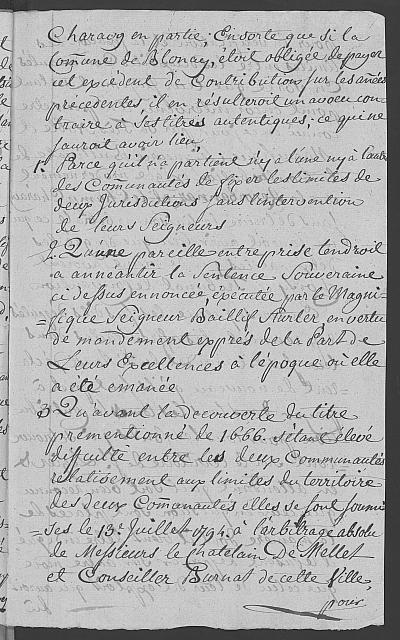 Charavy en partie; Ensorte que si la
Comune de Blonay, étoit obligée de payer
cet excédent de Contributions sur les années
précedentes, il en résulteroit un aveu con-
traire à ses titres autentiques; ce qui ne
sauroit avoir lieu,
1.° Parce qu'il n'apartient n'y a l'une n'y à l'autre
des Comunautés de fixer les limites de
deux Jurisdictions sans l'intervention
de leurs Seigneurs
2. Qu'une pareille entreprise tendroit
a annéantir la Sentence Souveraine
ci dessus ennoncée, éxécutée par le Magni-
= fique Seigneur Baillif Sturler, en vertu
de mandement exprès de la Part de
Leurs Excellences à l'époque où elle
a été emanée
3 Qu'avant la découverte du titre
prémentionné de 1666. s'étant élevé
difficulté entre les deux Communautés
relatisement aux limites du territoire
des deux Comunautés elles se sont soumi
= ses le 13.e Juillet 1794. à l'arbitrage absolu
de Messieurs le Chatelain De Mellet
et Conseiller Burnat de cette Ville,
pour